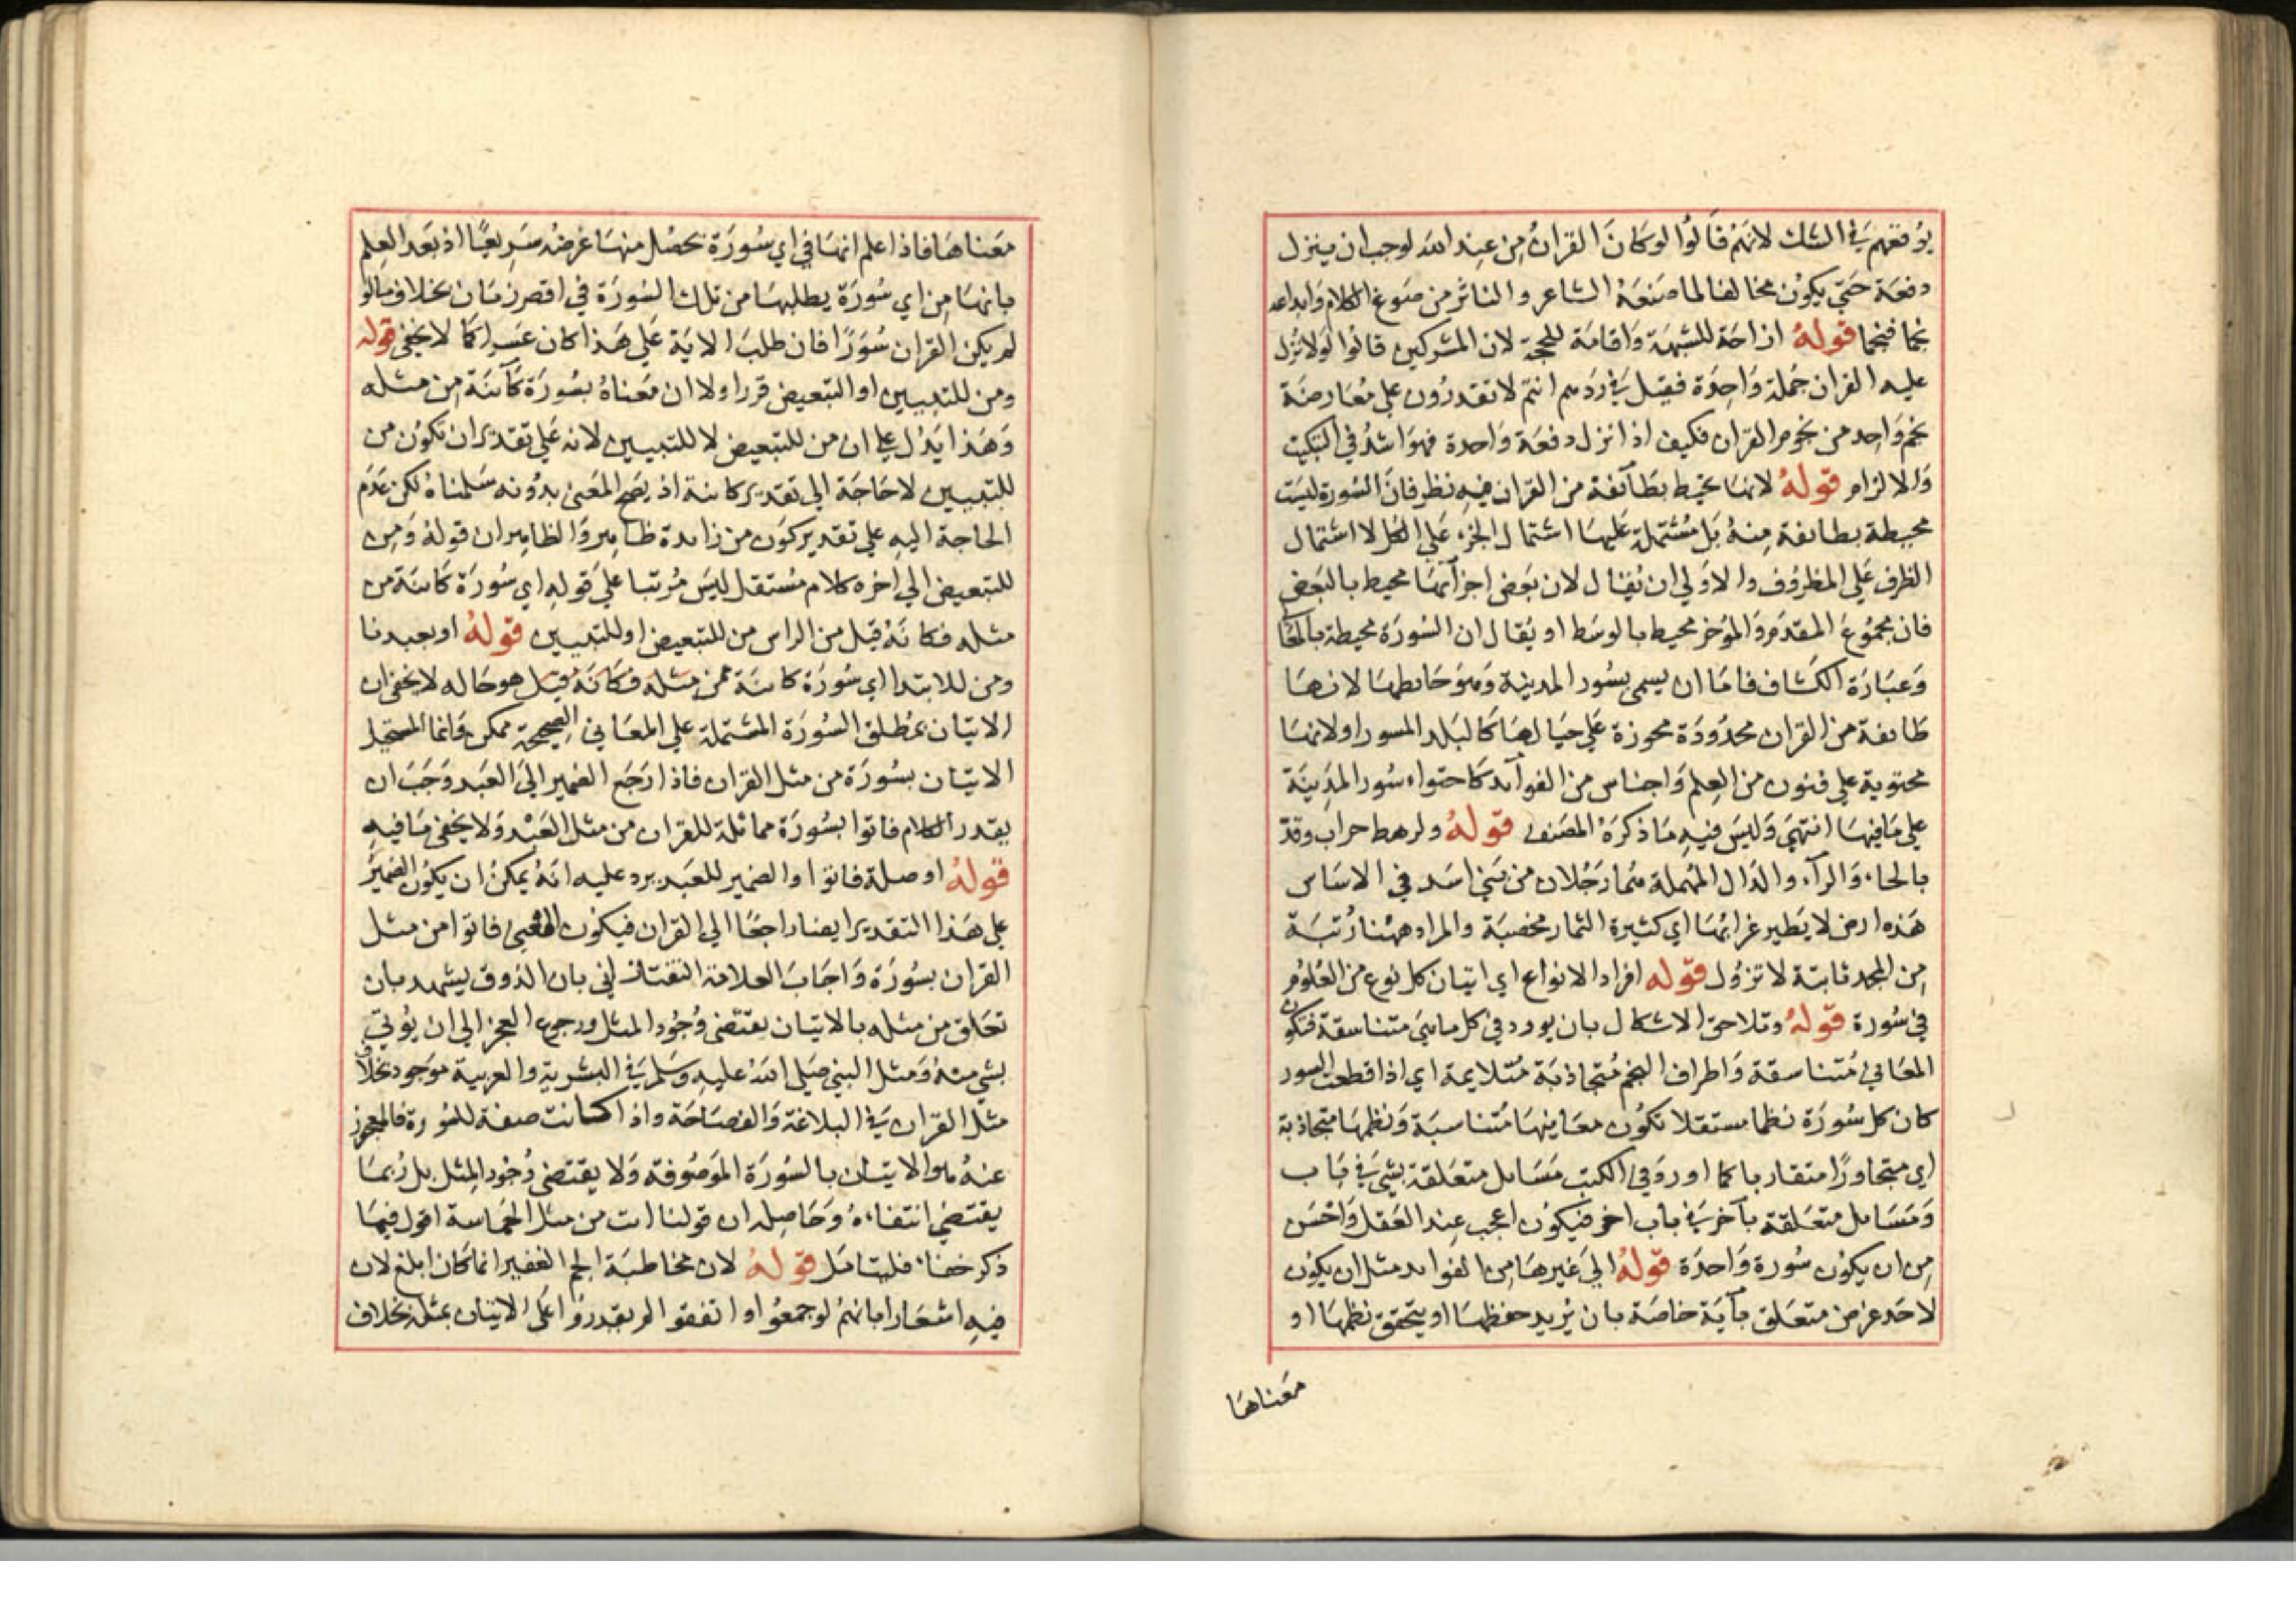 يوقعهم في الشك لانهم قالوا لو كان القران من عند الله لوجب ان ينزل
دفعة حتي يكون مخالفا لما صنعه الشاعر والناثر من صوغ الكلام وابداعه
نجما فنجما قوله ازاحة للشبهة واقامة للحجة لان المشركين قالوا لولا نزل
عليه القران جملة واحدة فقيل في ردهم انتم لا تقدرون علي معارضة
نجم واحد من نجوم القران فكيف اذا نزل دفعة واحدة فهو اشد في التبكيت
والالزام قوله لانها تحيط بطآئفة من القران فيه نظر فان السورة ليست
محيطة بطائفة منه بل مشتملة عليها اشتمال الجزء علي الكل لا اشتمال
الظرف علي المظروف والاولي ان يقال لان بعض اجزآئها محيط بالبعض
فان مجموع المقدم والمؤخر محيط بالوسط او يقال ان السورة محيطة
وعبارة الكشاف فاما ان يسمي بسور المدينة وهو حائطها لانها
طائفة من القران محدودة محوزة علي حيالها كالبلد المسور او لانها
محتوية علي فنون من العلم واجناس من الفوآئد كاحتواء سور المدينة
علي ما فيها انتهي وليس فيه ما ذكره المصنف قوله ولرهط حراب وقد
بالحاء والرآء والدال المهملة هما رجلان من بني اسد في الاساس
هذه ارض لا يطير غرابها اي كثيرة الثمار مخصبة والمراد ههنا رتبة
من المجد ثابتة لا تزول قوله افراد الانواع اي اتيان كل نوع من العلوم
في سورة قوله وتلاحق الاشكال بان يورد في كل ما هي متناسقة فتكون
المعاني متناسقة واطراف النجم متجاذبة متلايمة اي اذا قطعت السور
كان كل سورة نظما مستقلا تكون معاينها متناسبة ونظمها متجاذبة
اي متجاورا متقاربا كما اورد في الكتب مسائل متعلقة بشي في باب
ومسائل متعلقة بآخر في باب اخر فيكون اعجب عند العقل واحسن
من ان يكون سورة واحدة قوله الي غيرها من الفوائد مثل ان يكون
لاحد غرض متعلق بآية خاصة بان يريد حفظها او يتحقق نظمها او
معناها
معناها فاذا علم انها في اي سورة تحصل منها غرضه سريعا اذ بعد العلم
بانها من اي سورة يطلبها من تلك السورة في اقصر زمان بخلاف ما لو
لم يكن القران سورا فان طلب الاية علي هذا كان عسرا كما لا يخفي قوله
ومن للتبيين او التبعيض قرر اولا ان معناه بسورة كآئنة من مثله
وهذا يدل علي ان من للتبعيض لا للتبيين لانه علي تقدير ان تكون من
للتبيين لا حاجة الي تقدير كائنة اذ يصح المعني بدونه سلمناه لكن عدم
الحاجة اليه علي تقدير كون من زائدة ظاهر والظاهر ان قوله ومن
للتبعيض الي اخره كلام مستقل ليس مرتبا علي قوله اي سورة كائنة من
مثله فكانه قيل من الراس من للتبعيض او للتبيين قوله او بعبدنا
ومن للابتدا اي سورة كائنة ممن مثله فكانه قيل هو حاله لا يخفي ان
الاتيان بمطلق السورة المشتملة علي المعاني الصحيحة ممكن وانما المستحيل
الاتيان بسورة من مثل القران فاذا رجع الضمير الي العبد وجب ان
يقدر الكلام فاتوا بسورة مماثلة للقران من مثل العبد ولا يخفي ما فيه
قوله او صلة فاتوا والضمير للعبد يرد عليه انه يمكن ان يكون الضمير
علي هذا التقدير ايضا راجعا الي القران فيكون المعني فاتوا من مثل
القران بسورة واجاب العلامة التفتازاني بان الذوق يشهد بان
تعلق من مثله بالاتيان يقتضي وجود المثل ورجوع العجز الي ان يؤتي
بشي منه ومثل النبي صلي الله عليه وسلم في البشرية والعربية موجود بخلاف
مثل القران في البلاغة والفصاحة واذا كانت صفة للسورة فالمعجوز
عنه هو الاتيان بالسورة الموصوفة ولا يقتضي وجود المثل بل ربما
يقتضي انتفاءه وحاصله ان قولنا ات من مثل الحماسة اقول فيما
ذكر خفاء فليتامل قوله لان مخاطبة الجم الغفير انما كان ابلغ لان
فيه اشعارا بانهم لو جمعوا او اتفقوا لم يقدروا علي الاتيان بمثله بخلاف